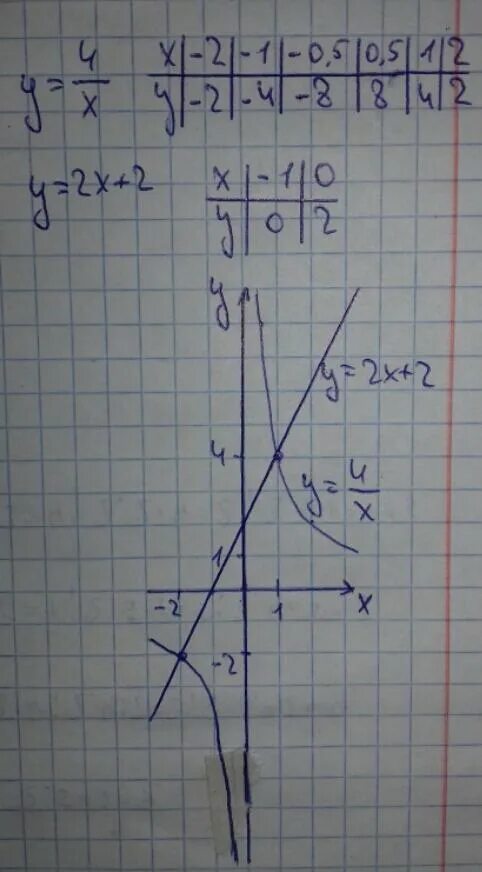 y = 4/x
x | -2 | -1 | -0,5 | 0,5 | 1 | 2
y | -2 | -4 | -8 | 8 | 4 | 2
y = 2x+2
x | -1 | 0
y | 0 | 2
y
y = 2x+2
4
y = 4/x
1
-2
1
x
-2